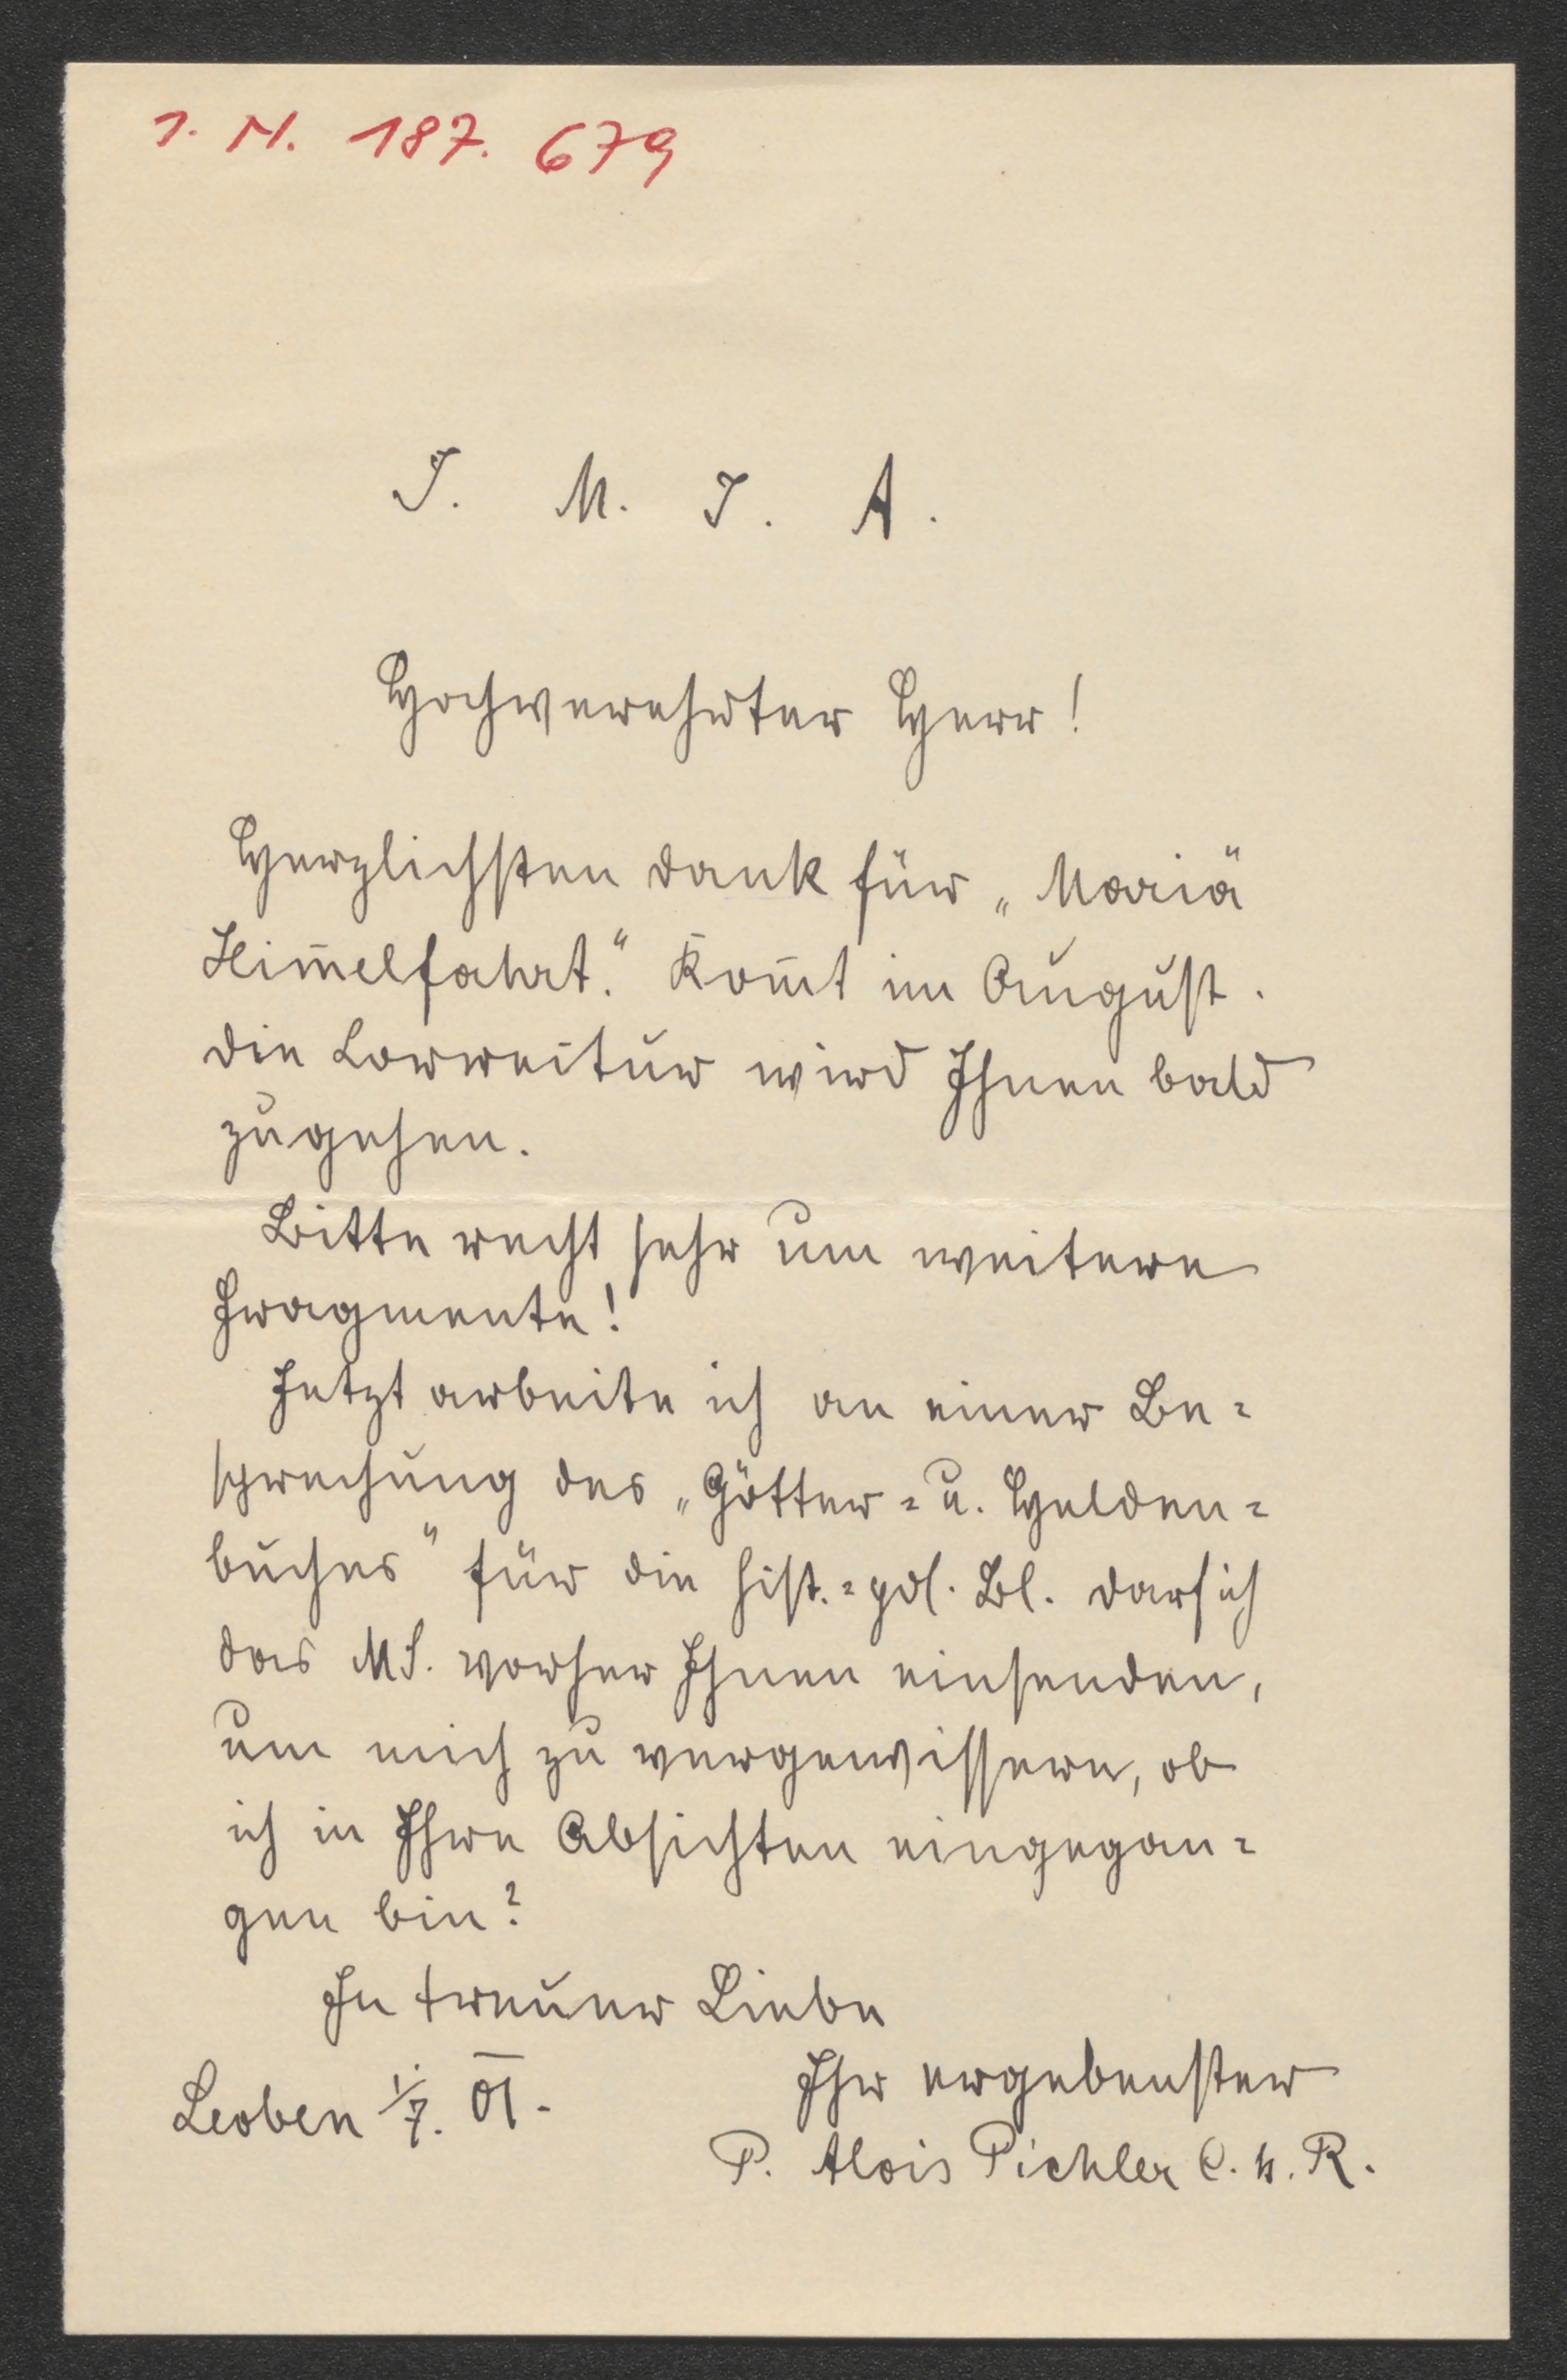 I. N. 187. 679
J. M. J. A.
Hochverehrter Herr!
Herzlichsten Dank für „Mariä
Him̅elfahrt." Kom̅t im August.
Die Correctur wird Ihnen bald
zugehen.
Bitte recht sehr um weitere
Fragmente!
Jetzt arbeite ich an einer Be=
sprechung des „Götter= u. Helden=
buches" für die hist.=pol. Bl. Darf ich
das MS. vorher Ihnen einsenden,
um mich zu vergewissern, ob
ich in Ihre Absichten eingegan=
gen bin?
In treuer Liebe
Ihr ergebenster
Leoben 1/7. 01.
P. Alois Pichler C. ss. R.